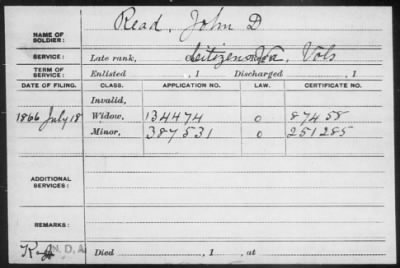 NAME OF SOLDIER: Read, John D
SERVICE: Late rank, Citizens Va. Vols
TERM OF SERVICE: Enlisted , 1 Discharged , 1
DATE OF FILING. CLASS. APPLICATION NO. LAW. CERTIFICATE NO.
Invalid,
1866 July 18 Widow, 134474 o 87458
Minor, 387531 o 251285
ADDITIONAL SERVICES:
REMARKS:
N. D. A. Died , 1 , at